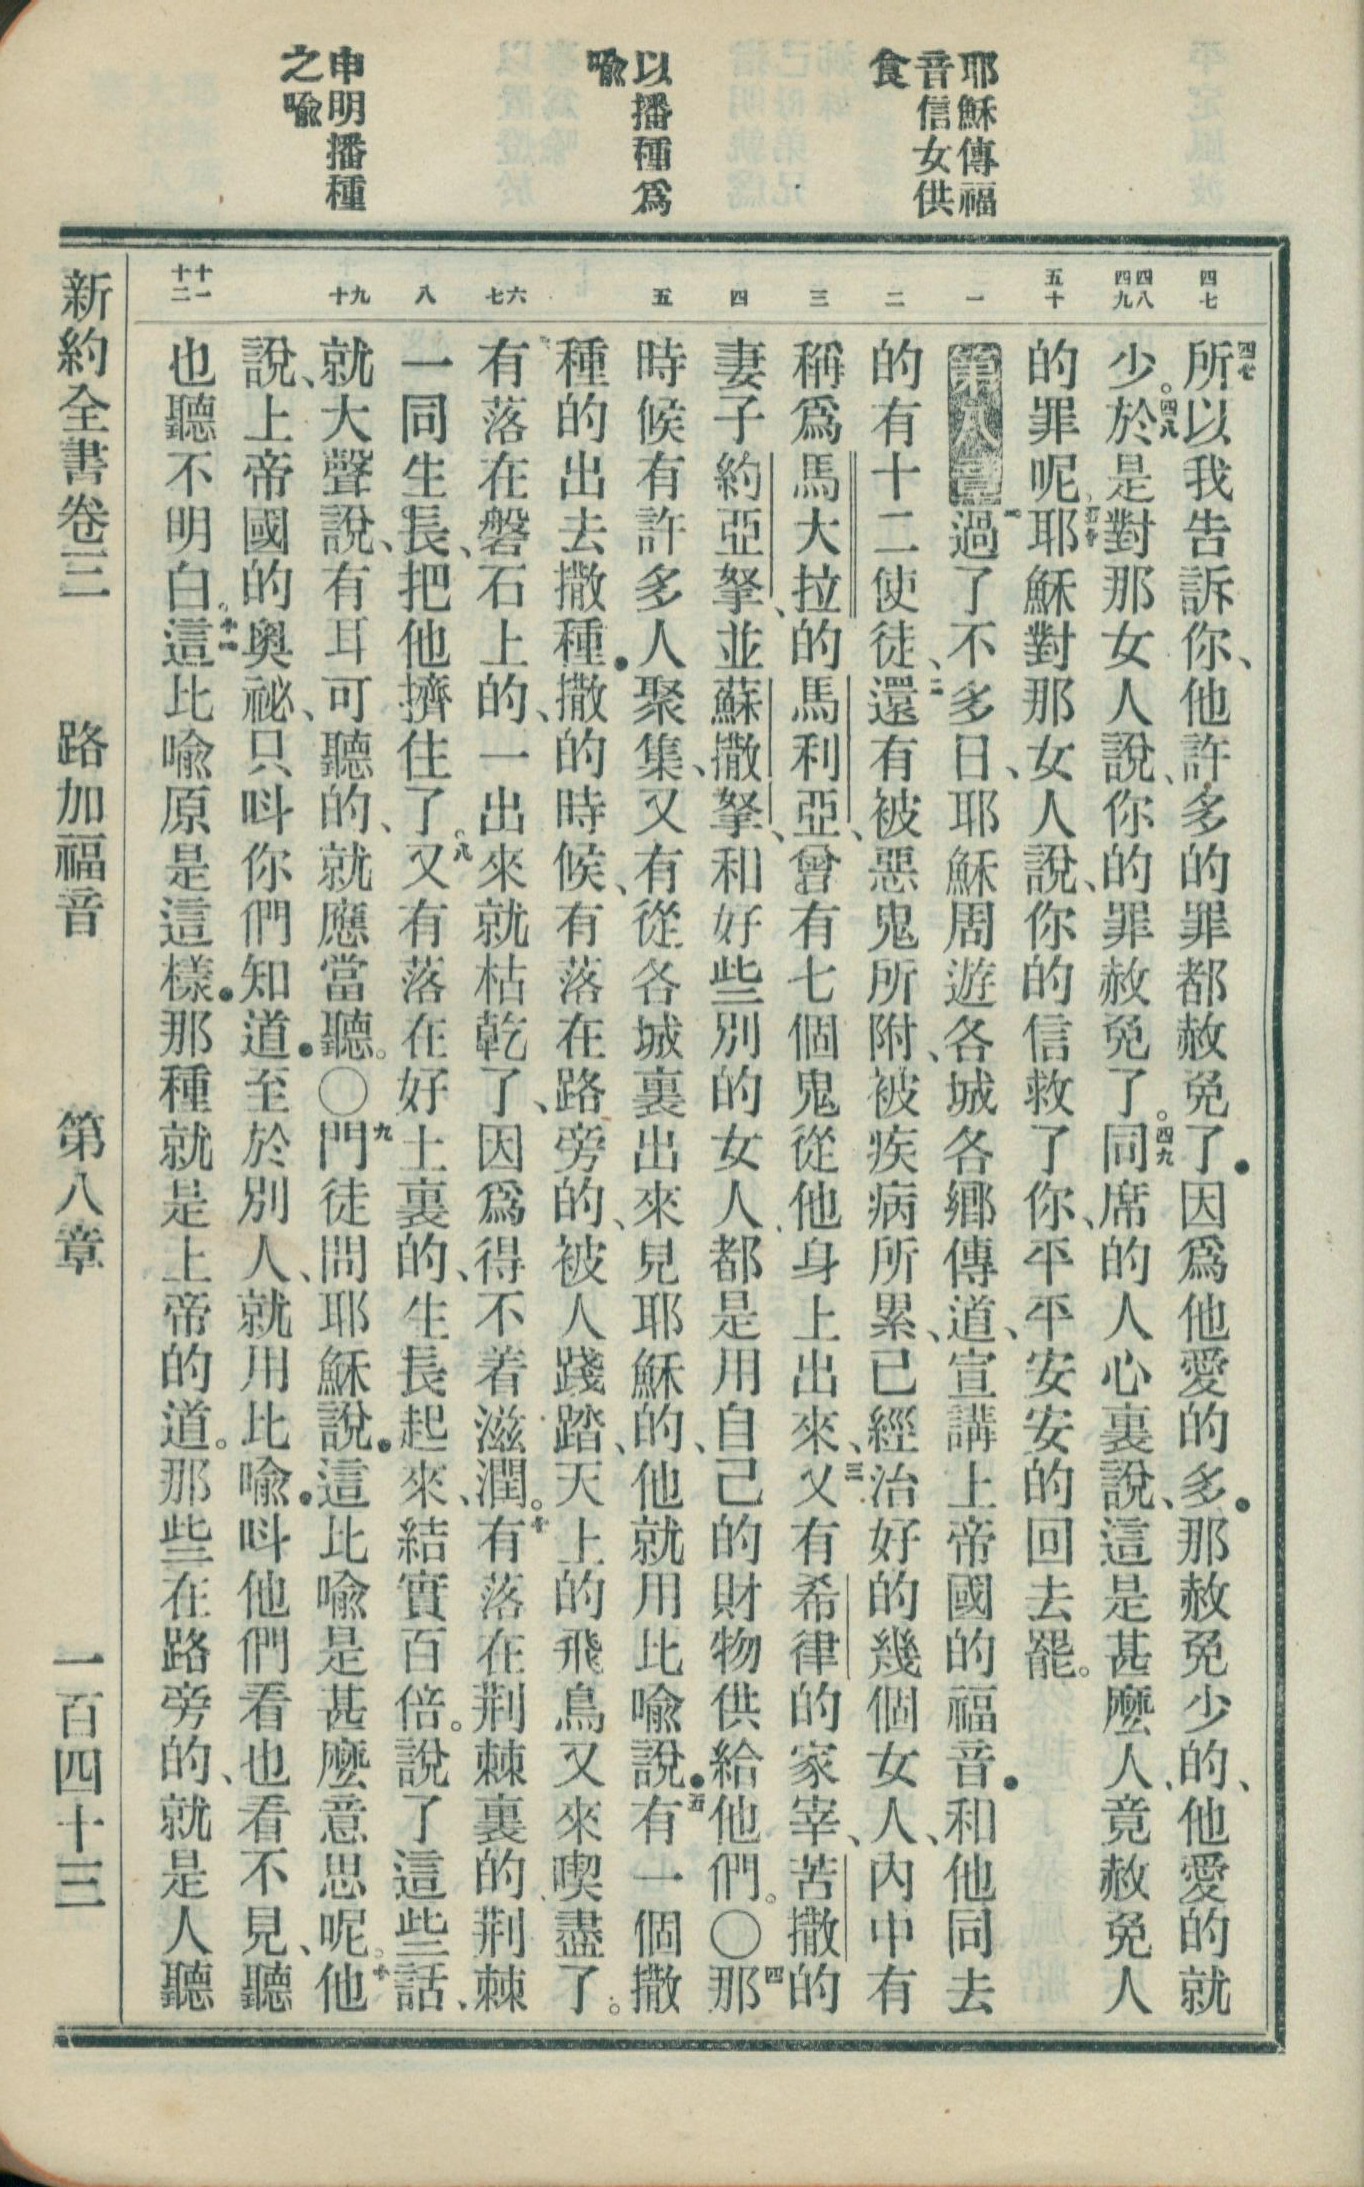 耶穌傳福
音信女供
食
以播種爲
喩
申明播種
之喩
四七
四八
四九
五十
一
二
三
四
五
六
七
八
九
十
十一
十二
四七所以我告訴你、他許多的罪都赦免了．因爲他愛的多．那赦免少的、他愛的就
少。四八於是對那女人說、你的罪赦免了。四九同席的人心裏說、這是甚麼人、竟赦免人
的罪呢、五十耶穌對那女人說、你的信救了你、平平安安的回去罷。
第八章一過了不多日、耶穌周遊各城各鄉傳道、宣講上帝國的福音．和他同去
的有十二使徒、二還有被惡鬼所附、被疾病所累、已經治好的幾個女人、內中有
稱爲馬大拉的馬利亞、曾有七個鬼從他身上出來、三又有希律的家宰、苦撒的
妻子約亞拏、並蘇撒拏、和好些別的女人、都是用自己的財物供給他們。〇四那
時候有許多人聚集、又有從各城裏出來見耶穌的、他就用比喩說．五有一個撒
種的出去撒種．撒的時候、有落在路旁的、被人踐踏、天上的飛鳥又來喫盡了。
有落在磐石上的、一出來就枯乾了、因爲得不着滋潤。七有落在荆棘裏的、荆棘
一同生長、把他擠住了。八又有落在好土裏的、生長起來、結實百倍。說了這些話、
就大聲說、有耳可聽的、就應當聽。〇九門徒問耶穌說．這比喩是甚麼意思呢。十他
說、上帝國的奧祕、只呌你們知道．至於別人、就用比喩．呌他們看也看不見、聽
也聽不明白。十一這比喩原是這樣．那種就是上帝的道。那些在路旁的、就是人聽
新約全書卷三　路加福音　第八章　一百四十三